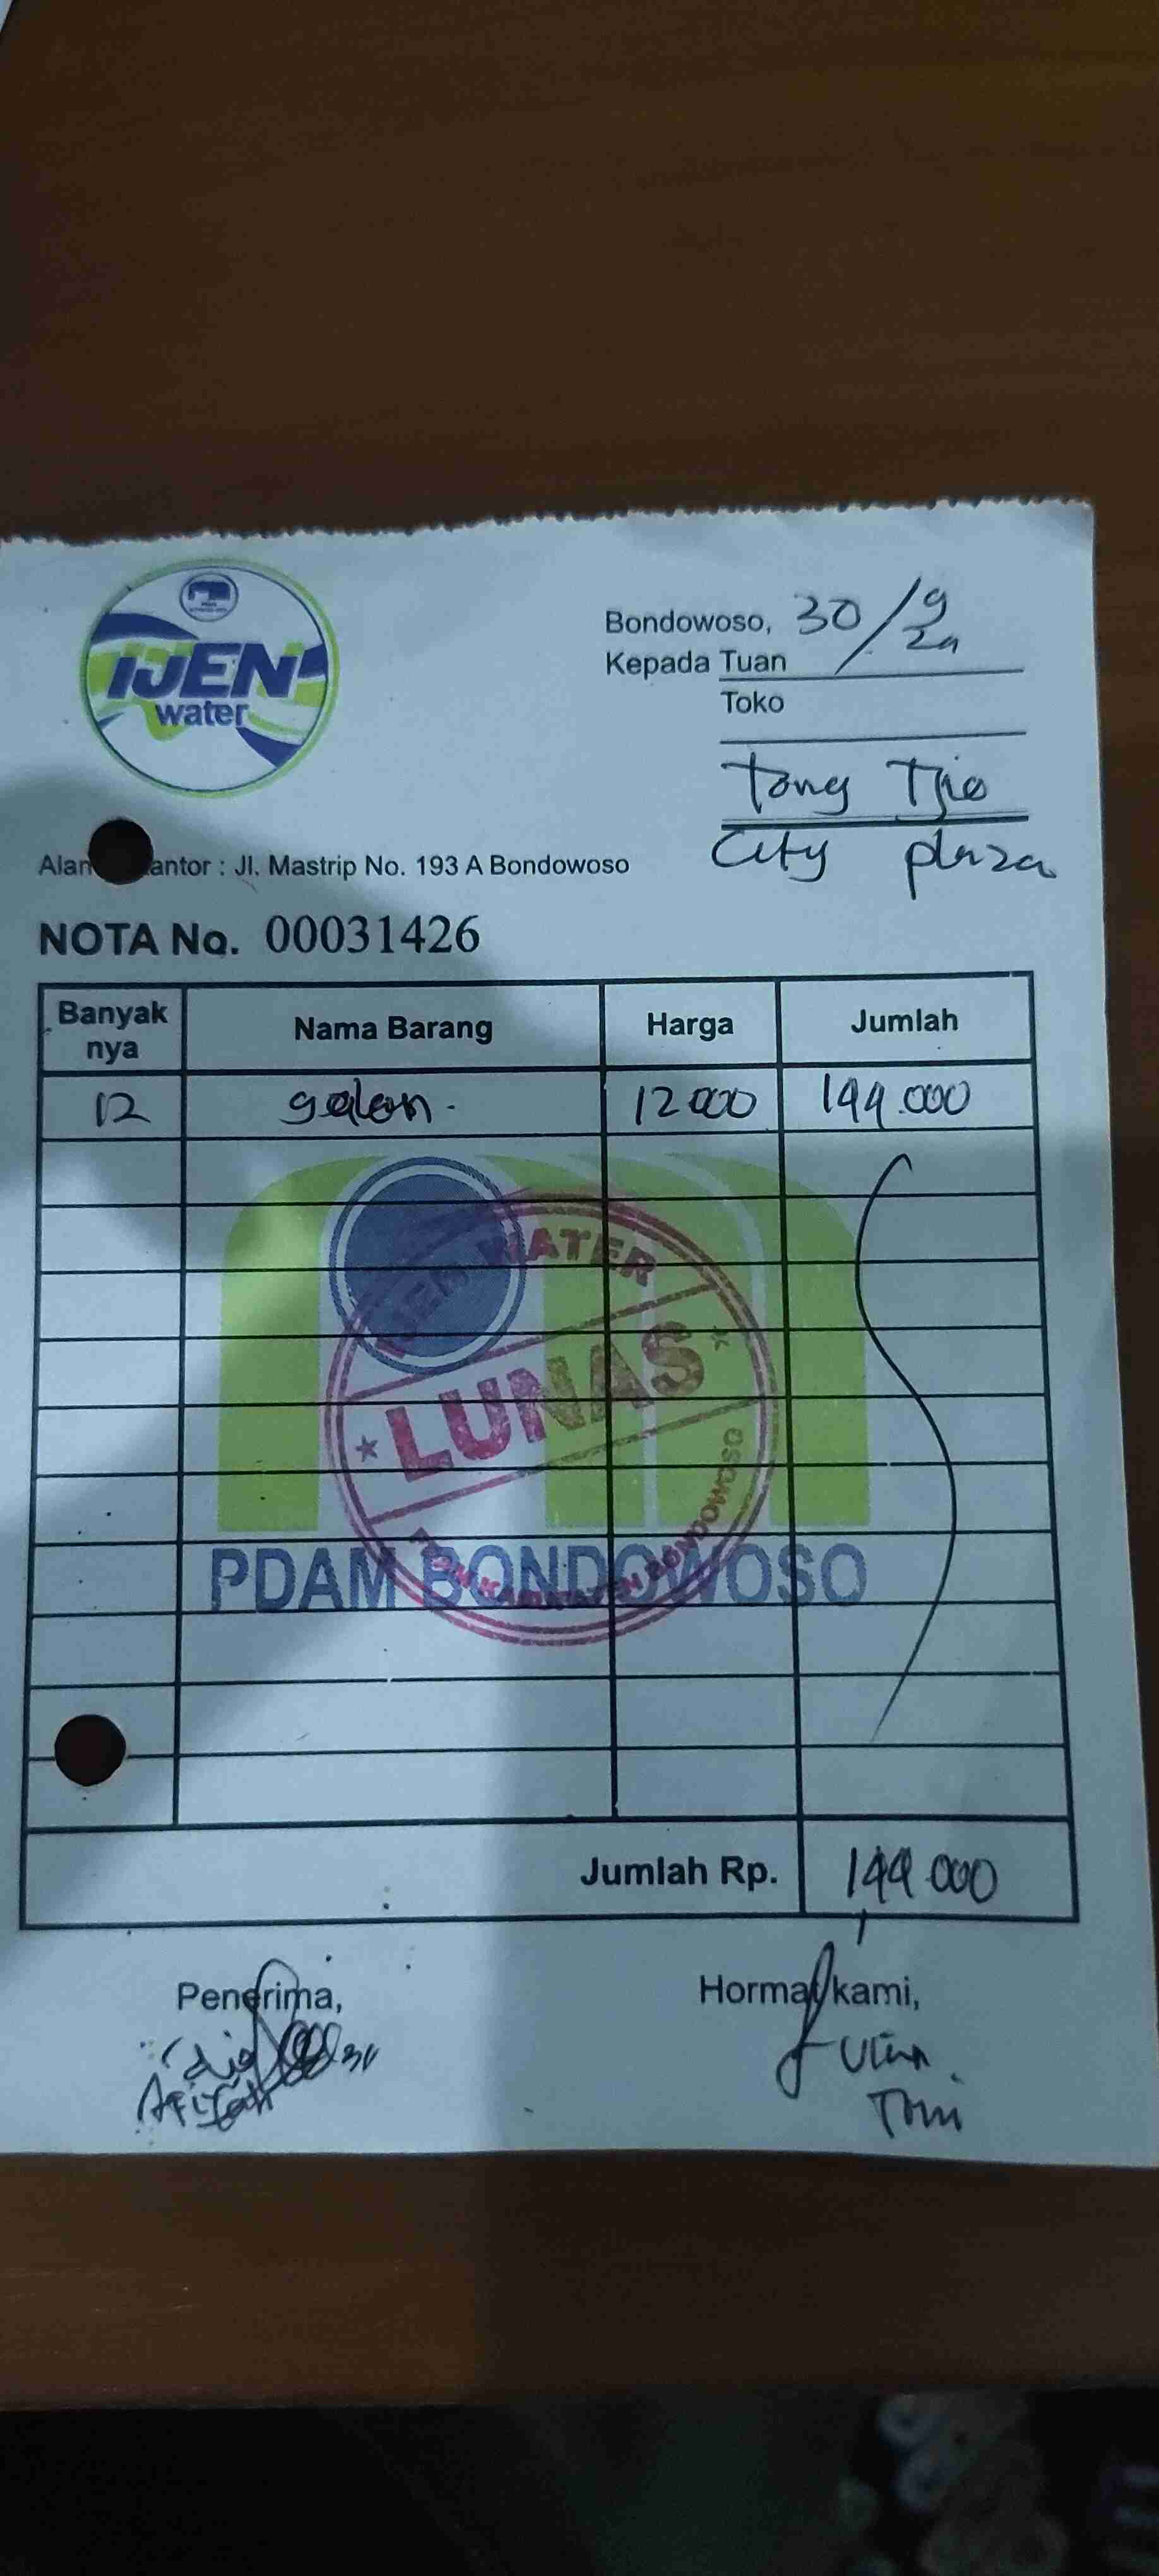 IJEN
water
Bondowoso, 30/9
24
Kepada Tuan
Toko
Tong Tjie
City plaza
Alam antor : Jl. Mastrip No. 193 A Bondowoso
NOTA No. 00031426
Banyak nya Nama Barang Harga Jumlah
12 galon. 12000 144.000
IJEN WATER
LUNAS
PDAM KABUPATEN BONDOWOSO
PDAM BONDOWOSO
Jumlah Rp. 144.000
Penerima, Hormat kami,